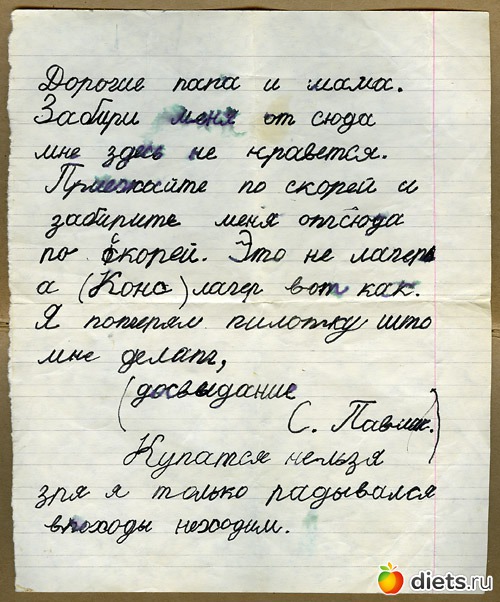 Дорогие папа и мама.
Забири меня от сюда
мне здесь не нравется.
Приезжайте по скорей и
забирите меня отсюда
по скорей. Это не лагерь
а (Конс) лагер вот как.
Я потерял пилотку што
мне делать,
(досвидание
С. Павлик.)
Купатся нельзя
зря я только радывался
впоходы неходим.
diets.ru